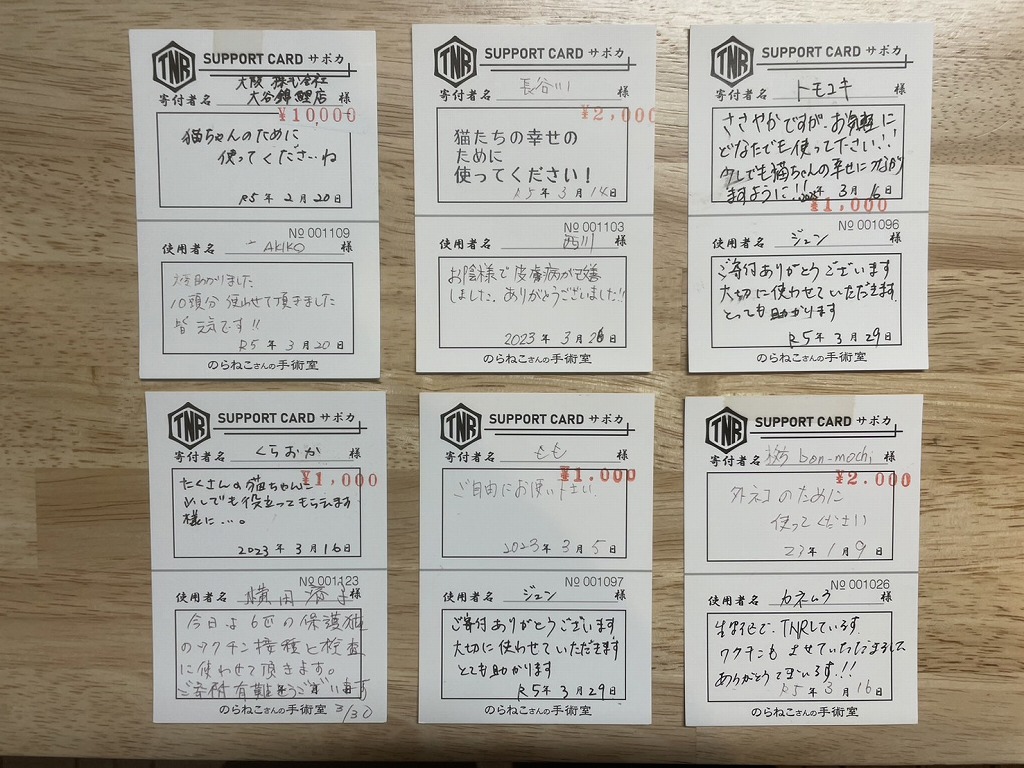 TNR SUPPORT CARD サポカ
大阪 株式会社
寄付者名 大谷錦鯉店 様
¥10000
猫ちゃんのために
使ってくださいね
R5年 2月 20日
№ 001109
使用者名 AKIKO 様
大変助かりました
10頭分 使わせて頂きました
皆 元気です!!
R5年 3月 20日
のらねこさんの手術室
TNR SUPPORT CARD サポカ
寄付者名 長谷川 様
¥2,000
猫たちの幸せの
ために
使ってください！
R5年 3月 14日
№ 001103
使用者名 西川 様
お陰様で皮膚病が改善
しました。ありがとうございました!!
2023年 3月 26日
のらねこさんの手術室
TNR SUPPORT CARD サポカ
寄付者名 トモユキ 様
ささやかですが、お気軽に
どなたでも使って下さい!!
少しでも猫ちゃんの幸せにつながり
ますように!! 年 3月 16日
¥1,000
№ 001096
使用者名 ジュン 様
ご寄付ありがとうございます
大切に使わせていただきます
とっても助かります
R5年 3月 29日
のらねこさんの手術室
TNR SUPPORT CARD サポカ
寄付者名 くらおか 様
¥1,000
たくさんの猫ちゃんに
少しでも役立ってもらえます
様に…。
2023年 3月 16日
№ 001123
使用者名 横田 様
今日は6匹の保護猫
のワクチン接種と検査
に使わせて頂きます。
ご寄付有難とうございます
3/30
のらねこさんの手術室
TNR SUPPORT CARD サポカ
寄付者名 もも 様
¥1.000
ご自由にお使い下さい
2023年 3月 5日
№ 001097
使用者名 ジュン 様
ご寄付ありがとうございます
大切に使わせていただきます
とても助かります
R5年 3月 29日
のらねこさんの手術室
TNR SUPPORT CARD サポカ
寄付者名 bon-mochi 様
¥2.000
外ネコのために
使ってください
23年 1月 9日
№ 001026
使用者名 カネムラ 様
TNRしています
ワクチンも させていただきました
ありがとうございます!!!
R5年 3月 16日
のらねこさんの手術室